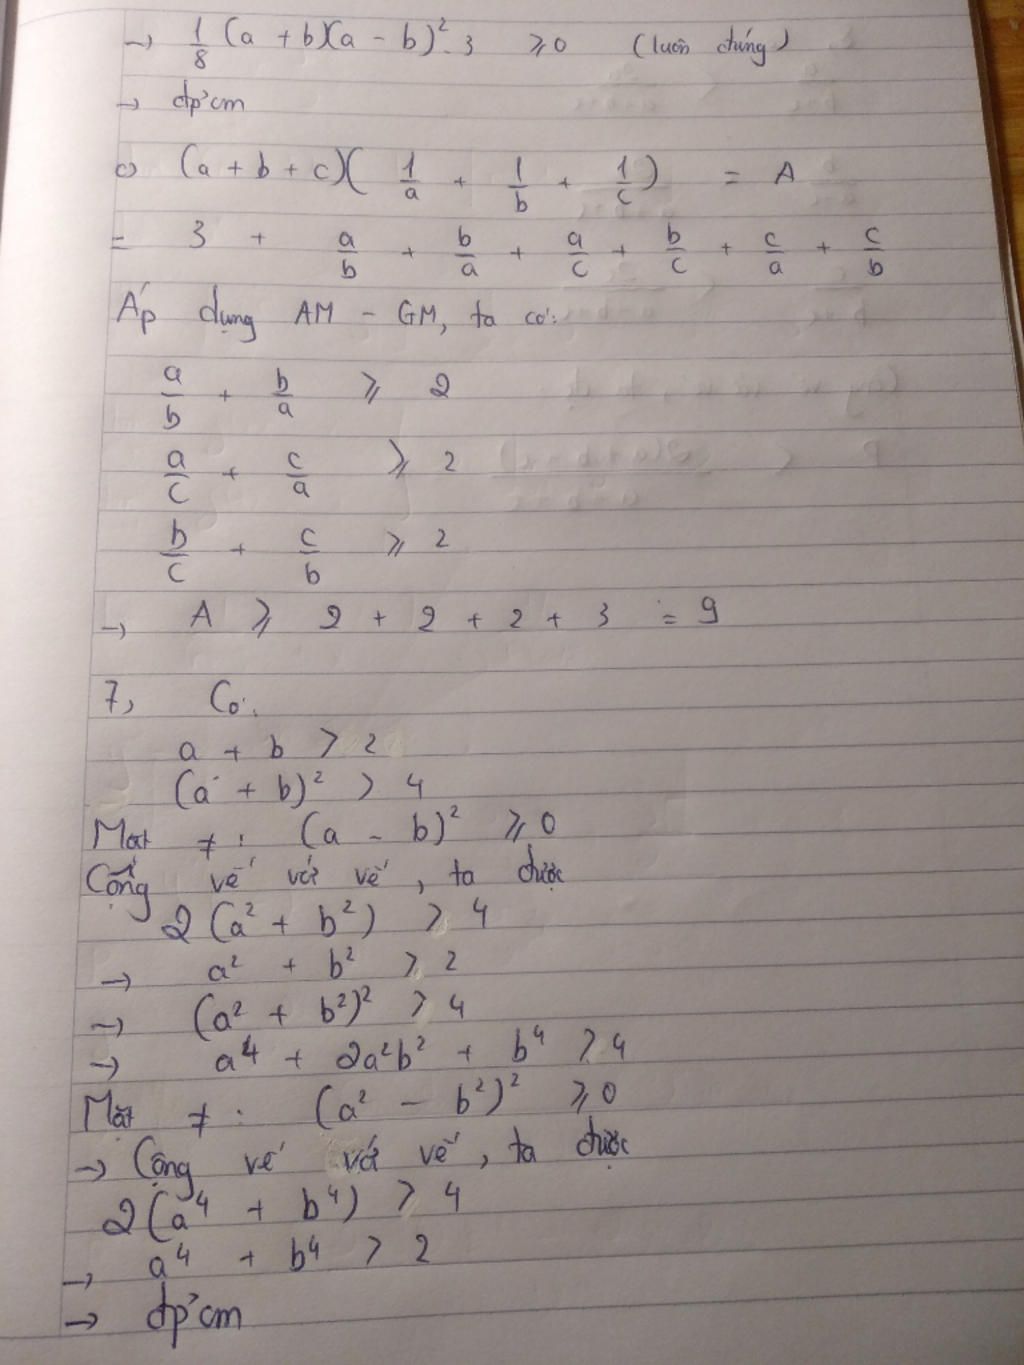 → 1/8 (a + b)(a - b)². 3 ⩾ 0 (luôn đúng)
→ đpcm
c) (a + b + c)(1/a + 1/b + 1/c) = A
= 3 + a/b + b/a + a/c + b/c + c/a + c/b
Áp dụng AM - GM, ta có:
a/b + b/a ⩾ 2
a/c + c/a ⩾ 2
b/c + c/b ⩾ 2
→ A ⩾ 2 + 2 + 2 + 3 = 9
7, Có:
a + b > 2
(a + b)² > 4
Mặt ≠ : (a - b)² ⩾ 0
Cộng vế với vế, ta được
2(a² + b²) > 4
→ a² + b² > 2
→ (a² + b²)² > 4
→ a⁴ + 2a²b² + b⁴ > 4
Mặt ≠ : (a² - b²)² ⩾ 0
→ Cộng vế với vế, ta được
2(a⁴ + b⁴) > 4
→ a⁴ + b⁴ > 2
→ đpcm